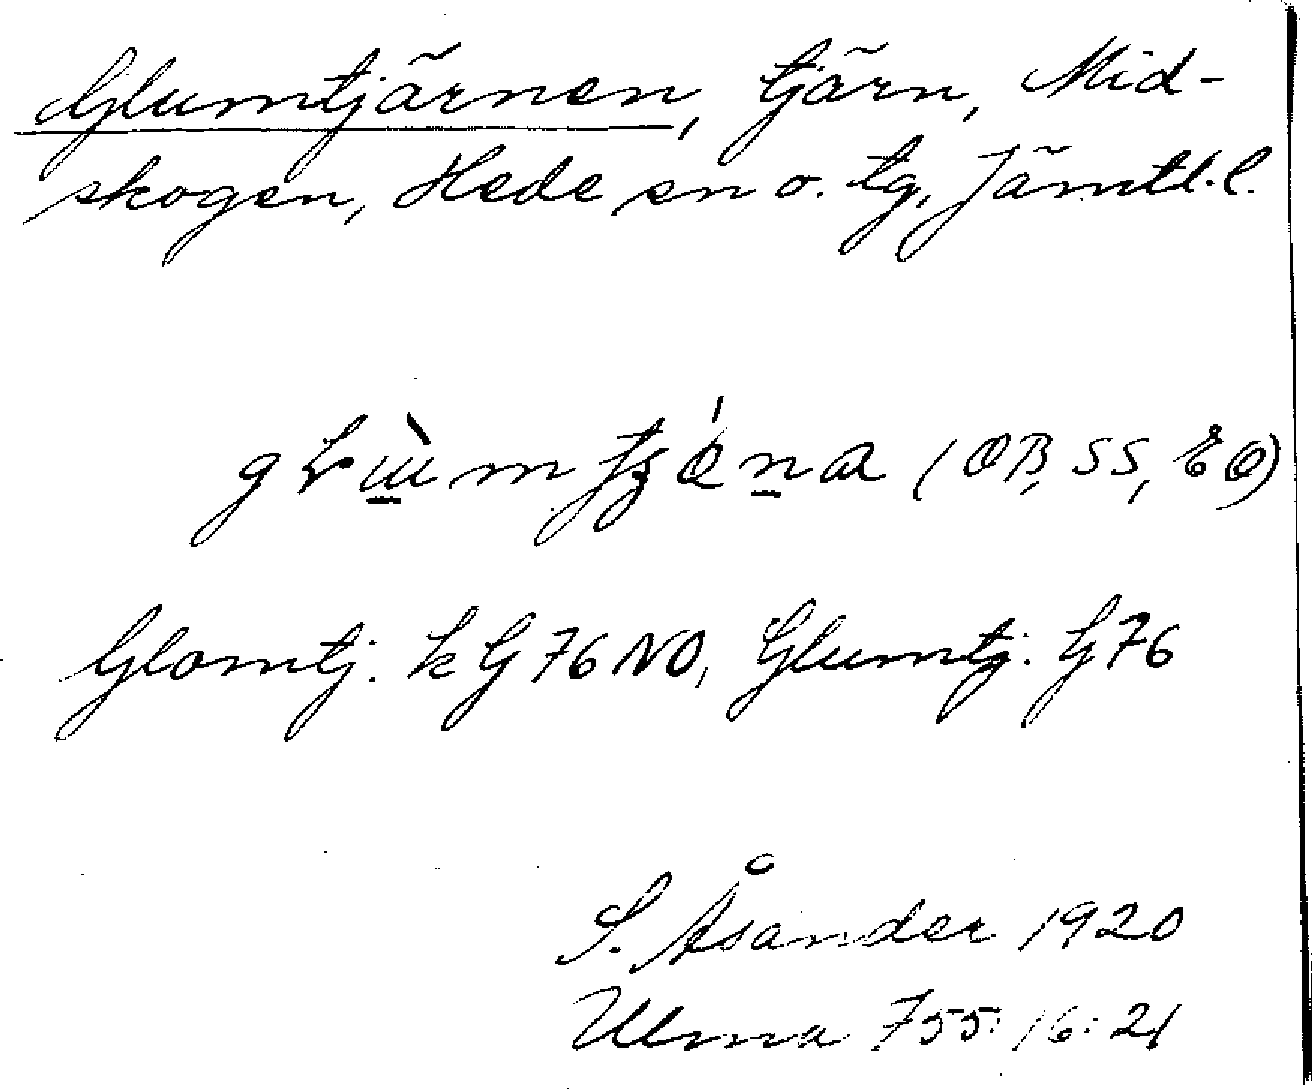 Glumtjärnen, tjärn, Mid-
skogen, Hede sn o. tg, Jämtl. l.
(OB, SS, EO)
Glomtj. k G 76 NO, Glumtj. G 76
S. Åsander 1920
Ulma 755: 16: 21